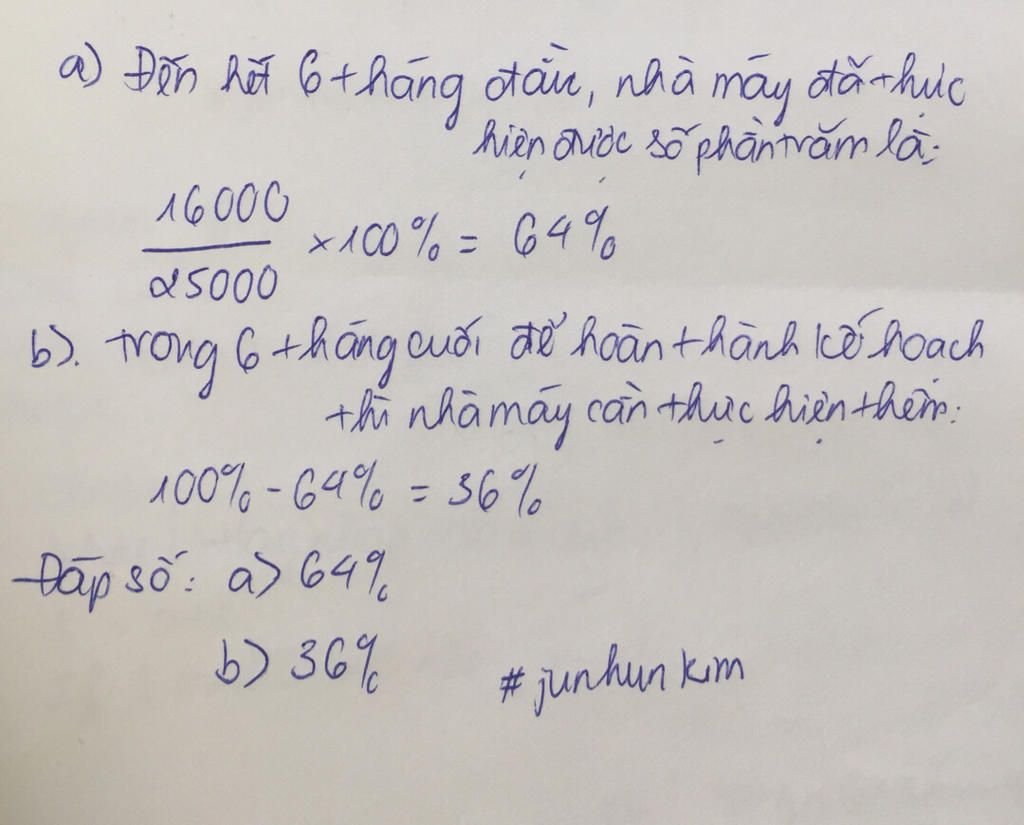 a) Đến hết 6 tháng đầu, nhà máy đã thực
hiện được số phần trăm là:
16000
25000
×100% = 64%
b). trong 6 tháng cuối để hoàn thành kế hoạch
thì nhà máy cần thực hiện thêm:
100% - 64% = 36%
Đáp số: a) 64%
b) 36%
#junhun kim